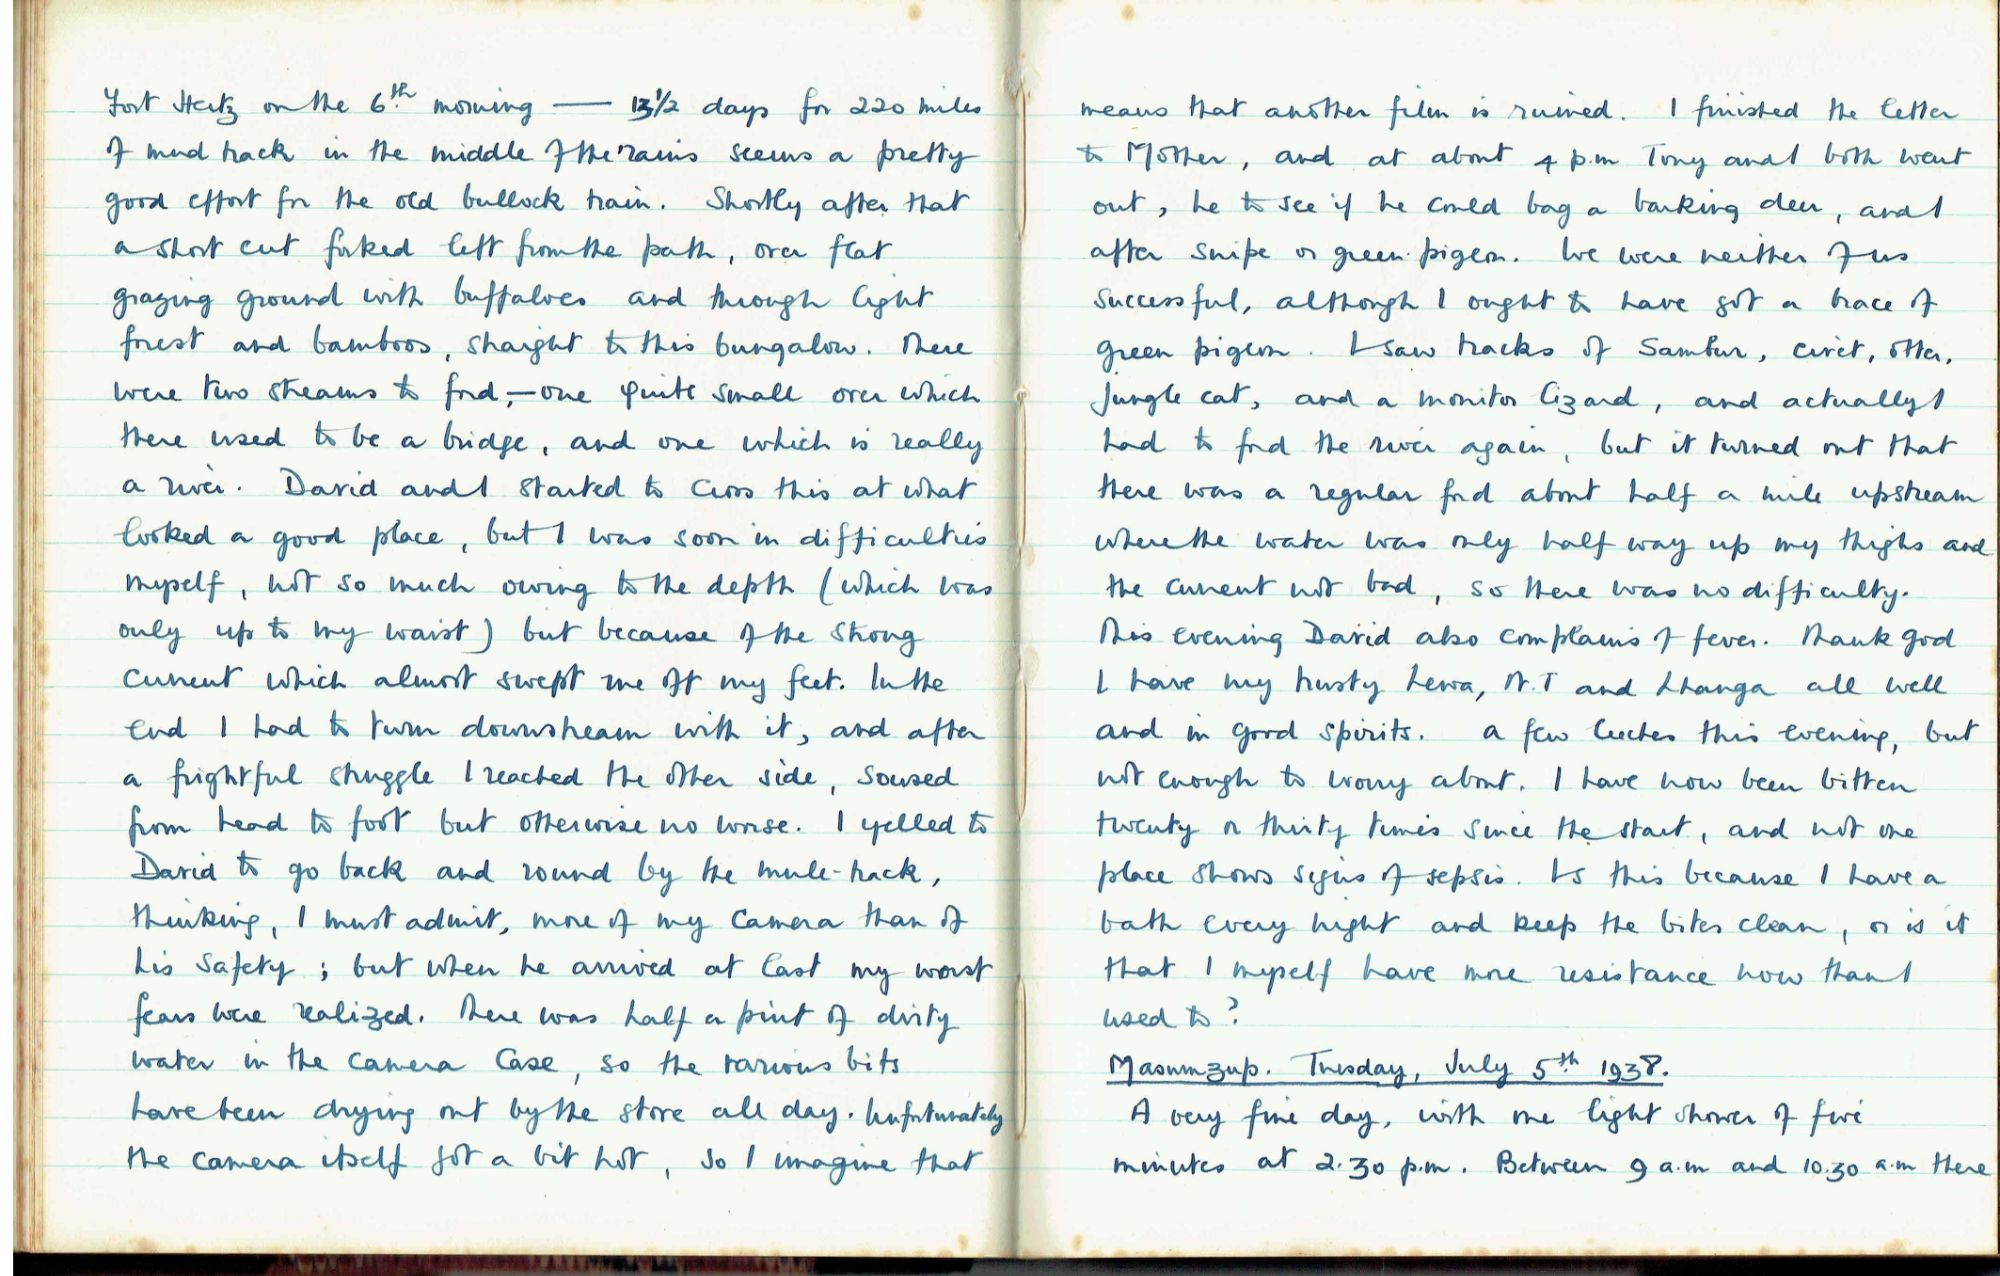 Fort Hertz on the 6th morning — 13½ days for 220 miles
of mud track in the middle of the rains seems a pretty
good effort for the old bullock train. Shortly after that
a short cut forked left from the path, over flat
grazing ground with buffaloes and through light
forest and bamboos, straight to this bungalow. There
were two streams to ford, — one quite small over which
there used to be a bridge, and one which is really
a river. David and I started to cross this at what
looked a good place, but I was soon in difficulties
myself, not so much owing to the depth (which was
only up to my waist) but because of the strong
current which almost swept me off my feet. In the
end I had to turn downstream with it, and after
a frightful struggle I reached the other side, soused
from head to foot but otherwise no worse. I yelled to
David to go back and round by the mule-track,
thinking, I must admit, more of my camera than of
his safety; but when he arrived at last my worst
fears were realized. There was half a pint of dirty
water in the camera case, so the various bits
have been drying out by the stove all day. Unfortunately
the camera itself got a bit hot, so I imagine that
means that another film is ruined. I finished the letter
to Mother, and at about 4 p.m Tony and I both went
out, he to see if he could bag a barking deer, and I
after snipe or green pigeon. We were neither of us
successful, although I ought to have got a brace of
green pigeon. I saw tracks of Sambur, civet, otter,
jungle cat, and a monitor lizard, and actually I
had to ford the river again, but it turned out that
there was a regular ford about half a mile upstream
where the water was only half way up my thighs and
the current not bad, so there was no difficulty.
This evening David also complains of fever. Thank god
I have my trusty Lewa, N.T and Lhanga all well
and in good spirits. A few leeches this evening, but
not enough to worry about. I have now been bitten
twenty or thirty times since the start, and not one
place shows signs of sepsis. Is this because I have a
bath every night and keep the bites clean, or is it
that I myself have more resistance now than I
used to?
Masumzup. Tuesday, July 5th 1938.
A very fine day, with one light shower of five
minutes at 2.30 p.m. Between 9 a.m and 10.30 a.m there